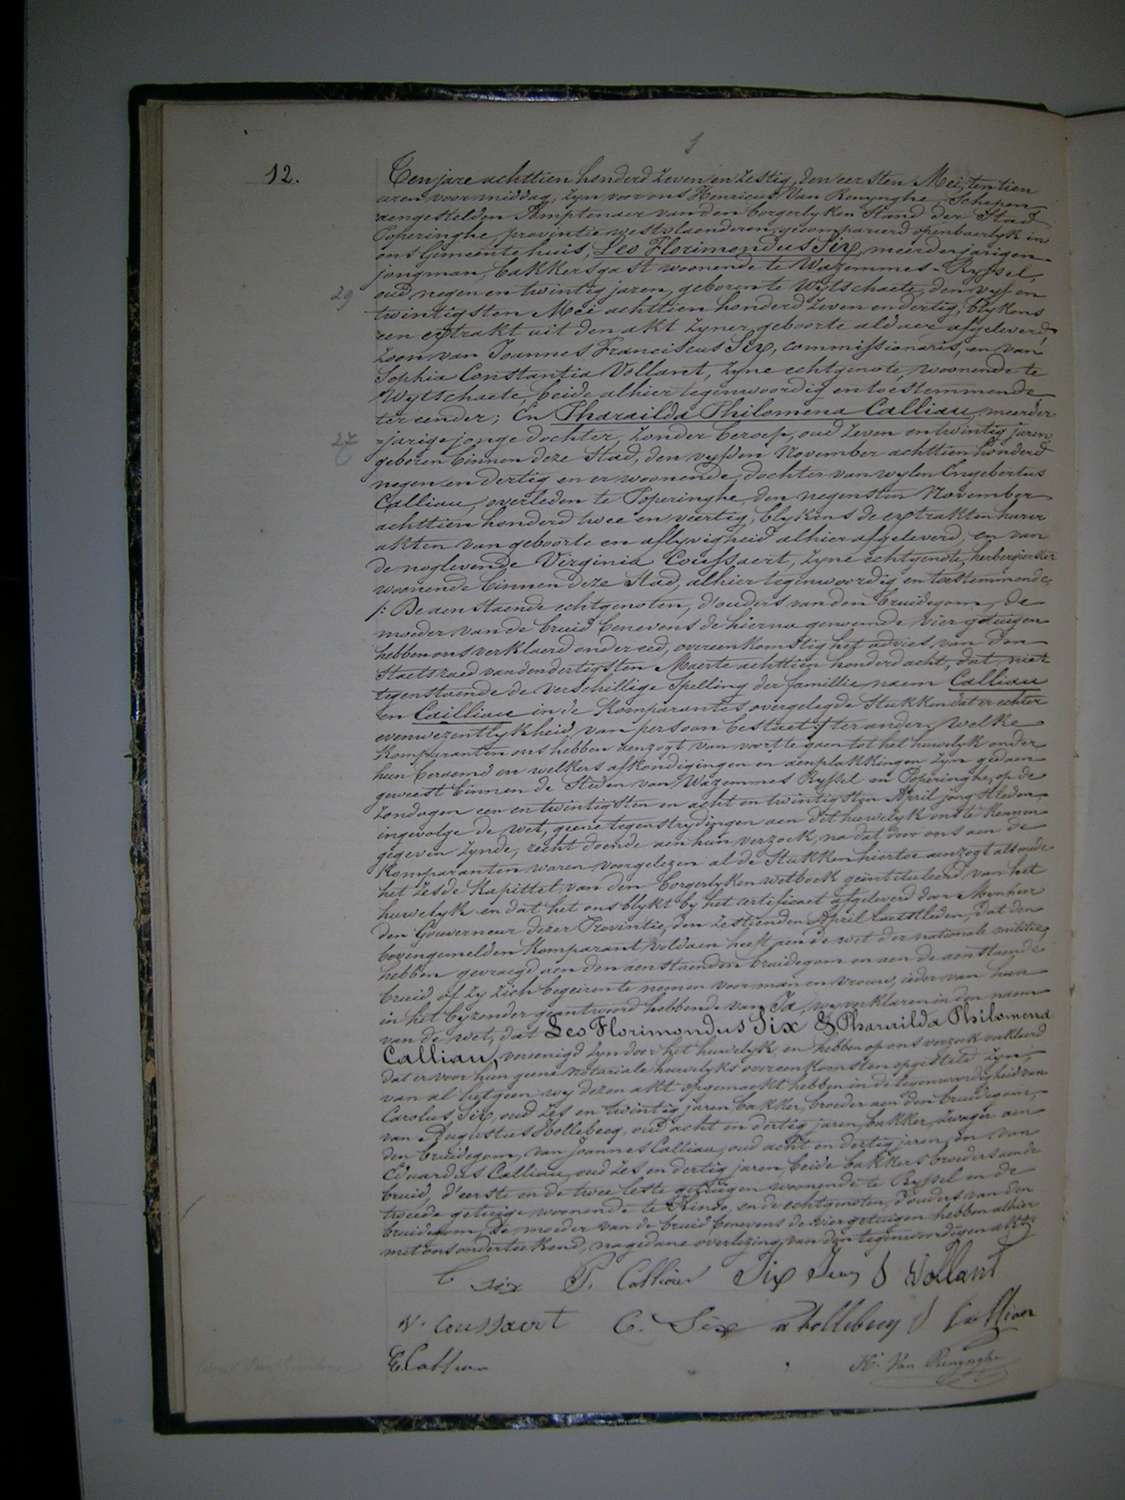 1
12.
Ten jare achttien honderd zeven en zestig, den eersten Mei, ten tien
uren voormiddag, zyn voor ons Henricus Van Renynghe, Schepen
aengestelden Amptenaer van den borgerlyken Stand der Stad
Poperinghe, provintie westvlaenderen, gecompareerd openbaerlyk in
ons Gemeentehuis, Leo Florimondus Six, meerderjarigen
jongman, bakkersgast woonende te Wazemmes-Ryssel,
29
oud negen en twintig jaren, geboren te Wytschaete, den vyf en
twintigsten Mei achttien honderd zeven en dertig, blykens
een extrakt uit den akt zyner geboorte aldaer afgeleverd,
zoon van Joannes Franciscus Six, commissionaris, en van
Sophia Constantia Vollant, zyne echtgenote, woonende te
Wytschaete, beide alhier tegenwoordig en toestemmende
ter eender; En Pharailda Philomena Calliau, meerder
27
-jarige jonge dochter, zonder beroep, oud zeven en twintig jaren,
geboren binnen deze Stad, den vyfden November achttien honderd
negen en dertig en er woonende, dochter van wylen Engebertus
Calliau, overleden te Poperinghe, den negensten November
achttien honderd twee en veertig, blykens de extrakten harer
akten van geboorte en aflyvigheid alhier afgeleverd, en van
de noglevende Virginia Coussaert, zyne echtgenote, herbergierster
woonende binnen deze Stad, alhier tegenwoordig en toestemmende,
/: De aenstaende echtgenoten, d'ouders van den bruidegom, de
moeder van de bruid benevens de hierna genoemde vier getuigen
hebben ons verklaerd onder eed, overeenkomstig het advies van den
Staetsraed van den dertigsten Maerte achttien honderd acht, dat niet
tegenstaende de verschillige spelling der famillie naem Calliau
en Cailliau in de Komparanten overgelegde Stukken dat er echter
evenwezentlykheid van persoon bestaet :/ ter ander, welke
Komparanten ons hebben aenzogt van voort te gaen tot het huwelyk onder
hun beraemd en welkers afkondigingen en aenplakkingen zyn gedaen
geweest binnen de Steden van Wazemmes Ryssel en Poperinghe, op de
Zondagen een en twintigsten en acht en twintigsten April jongstleden,
ingevolge de wet, geene tegenstrydingen aen dit huwelyk ons te kennen
gegeven zynde, recht doende aen hun verzoek, na dat door ons aen de
Komparanten waren voorgelezen al de Stukken hiertoe aenzogt alsmede
het zesde Kapittel van den borgerlyken wetboek geintituleerd van het
huwelyk en dat het ons blykt by het certificaet afgeleverd door Mynheer
den Gouverneur dezer Provintie, den zestienden April laetstleden, dat den
bovengemelden Komparant voldaen heeft aen de wet der nationale militie,
hebben gevraegd aen den aenstaenden bruidegom en aen de aenstaende
bruid, of zy zich begeiren te nemen voor man en vrouw, ieder van hun
in het byzonder geantwoord hebbende van Ja, wy verklaren in den naem
van de wet, dat Leo Florimondus Six & Pharailda Philomena
Calliau, vereenigd zyn door het huwelyk en hebben op ons verzoek verklaerd
dat er voor hun geene notariale huwelyks overeenkomsten opgesteld zyn,
van al hetgeen wy dezen akt opgemaekt hebben in de tegenwoordigheid van
Carolus Six, oud zes en twintig jaren bakker, broeder aen den bruidegom,
van Augustus Hollebecq, oud acht en dertig jaren, bakker, zwager aen
den bruidegom, van Joannes Calliau, oud acht en dertig jaren, en van
Eduardus Calliau, oud zes en dertig jaren, beide bakkers broeders aen de
bruid, d'eerste en de twee leste getuigen woonende te Ryssel en de
tweede getuige woonende te , en de echtgenoten, d'ouders van den
bruidegom, De moeder van de bruid benevens de vier getuigen hebben alhier
met ons onderteekend, na gedane overlezing van den tegenwoordigen akt.
L Six P. Calliau Six S Vollant
V. Coussaert C. Six a hollebecq J Calliau
E Calliau H. Van Renynghe